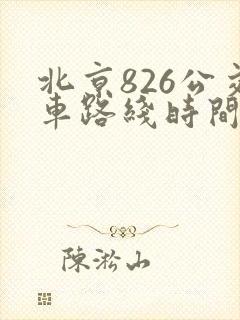 北京826公交
車路綫時間
陳淞山